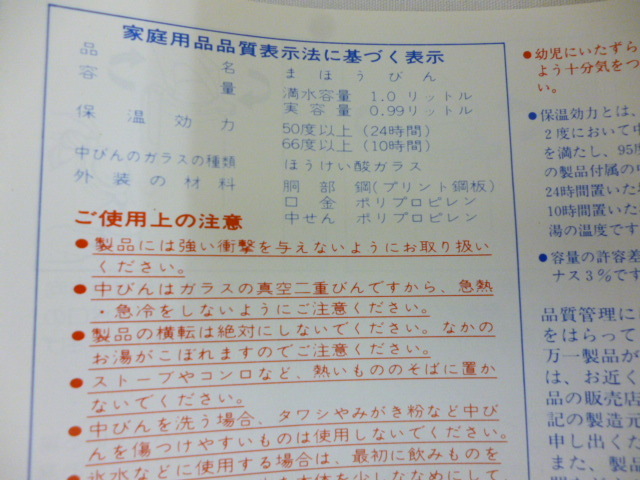 家庭用品品質表示法に基づく表示
品名 まほうびん
容量 満水容量 1.0 リットル
実容量 0.99リットル
保温効力 50度以上(24時間)
66度以上(10時間)
中びんのガラスの種類 ほうけい酸ガラス
外装の材料 胴部 鋼(プリント鋼板)
口金 ポリプロピレン
中せん ポリプロピレン
ご使用上の注意
●製品には強い衝撃を与えないようにお取り扱い
ください。
●中びんはガラスの真空二重びんですから、急熱
・急冷をしないようにご注意ください。
●製品の横転は絶対にしないでください。なかの
お湯がこぼれますのでご注意ください。
●ストーブやコンロなど、熱いもののそばに置か
ないでください。
●中びんを洗う場合、タワシやみがき粉など中び
んを傷つけやすいものは使用しないでください。
●氷水などに使用する場合は、最初に飲みものを
本体を少しななめにして、
●幼児にいたずら
よう十分気をつ
い。
●保温効力とは、
2度において中
を満たし、95度
の製品付属の中
24時間置いた
10時間置いた
湯の温度です
●容量の許容差
ナス3％です
品質管理に
をはらって
万一製品が
は、お近く
品の販売店
記の製造元
申し出くだ
また、製品